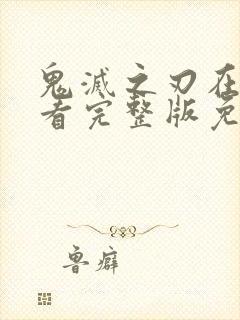 鬼灭之刃在
看完整版免
鲁癖